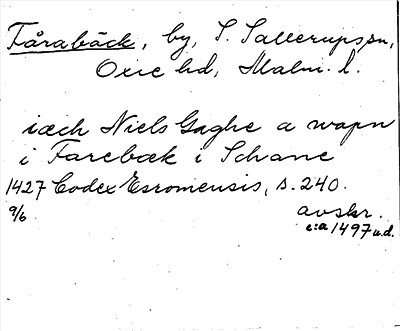 Fårabäck, by, S. Sallerups sn,
Oxie hd, Malm. l.
iæch Niels Gaghe a wapn
i Farebæk i Schane
1427 Codex Esromensis, s. 240.
9/6 avskr.
c:a 1497 u.d.